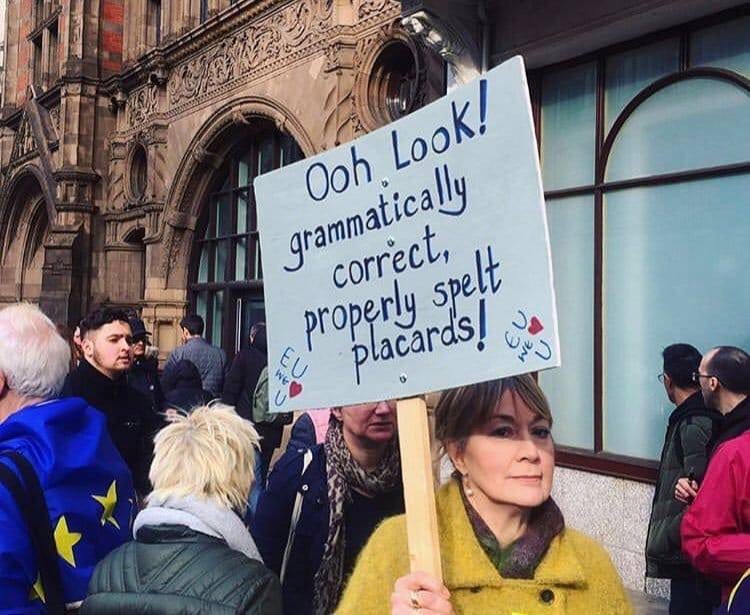 Ooh Look!
grammatically
correct,
properly spelt
placards!
EU
WE
U
EU
WE
U